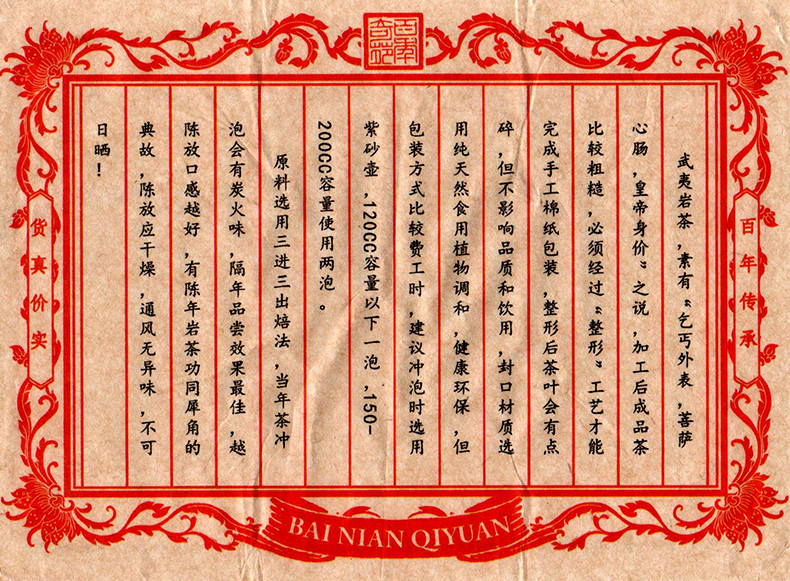 百年
奇苑
百年传承
武夷岩茶，素有“乞丐外表，菩萨
心肠，皇帝身价”之说，加工后成品茶
比较粗糙，必须经过“整形”工艺才能
完成手工棉纸包装，整形后茶叶会有点
碎，但不影响品质和饮用，封口材质选
用纯天然食用植物调和，健康环保，但
包装方式比较费工时，建议冲泡时选用
紫砂壶，120CC容量以下一泡，150-
200CC容量使用两泡。
原料选用三进三出焙法，当年茶冲
泡会有炭火味，隔年品尝效果最佳，越
陈放口感越好，有陈年岩茶功同犀角的
典故，陈放应干燥，通风无异味，不可
日晒！
货真价实
BAI NIAN QIYUAN